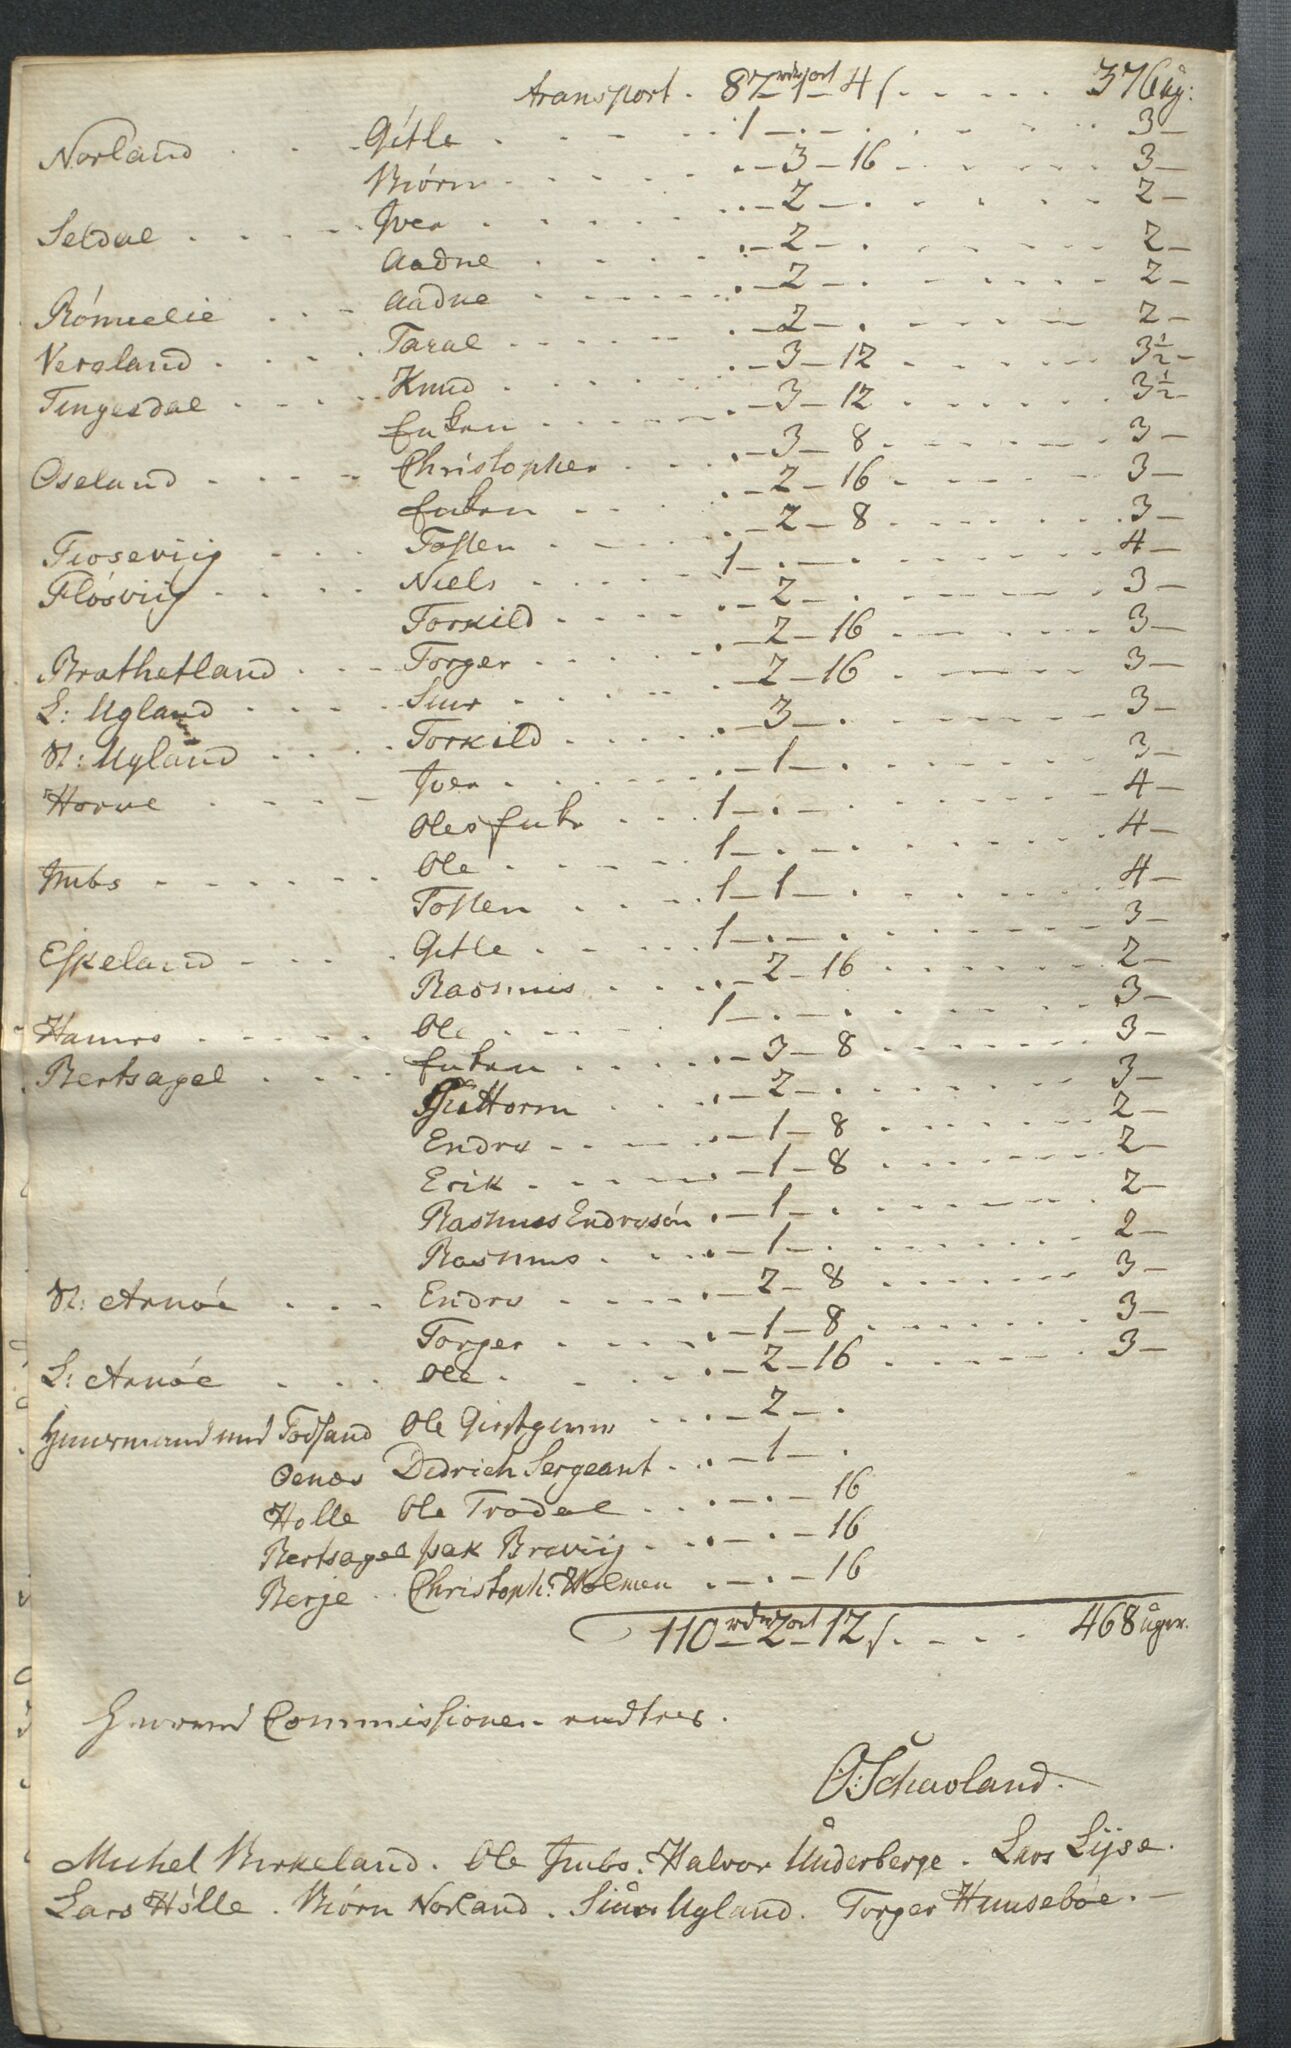 transport . 87 rdr 1 ort 4 s . . . . . 376 ug:
Norland . . . Gitle . . . . . 1 — . — . . . . . 3 —
Biórn . . . . . . — 3 — 16 . . . . . 3 —
Seldal . . . . . Iver . . . . . — 2 — . . . . . 2 —
Aadne . . . . . — 2 — . . . . . 2 —
Rómelie . . . Aadne . . . . . — 2 — . . . . . 2 —
Vergland . . . . Taral . . . . . — 2 — . . . . . 2 —
Tengesdal . . . . Knud . . . . . — 3 — 12 . . . . . 3 1/2 —
Enken . . . . . — 3 — 12 . . . . . 3 1/2
Oseland . . . . Christopher . . . . — 3 — 8 . . . . . 3 —
Enken . . . . — 2 — 16 . . . . . 3 —
Tiosevjig . . . Tosten . . . . — 2 — 8 . . . . . 3 —
Flósviig . . . . Niels . . . . . 1 — . — . . . . . 4 —
Torkild . . . . — 2 — . . . . . 3 —
Brathetland . . . Torger . . . . . — 2 — 16 . . . . 3 —
L: Ugland . . . . Siur . . . . . — 2 — 16 . . . . 3 —
St: Ugland . . . . Torkild . . . . . — 3 — . . . . . 3 —
Horne . . . . Iver . . . . . — 1 — . . . . . 3 —
Oles Enke . . . 1 — . — . . . . . 4 —
Imbs . . . . . . Ole . . . . . 1 — . — . . . . . 4 —
Tosten . . . . . 1 — 1 — . . . . . 4 —
Eskeland . . . . Gitle . . . . . 1 — . — . . . . . 3 —
Rasmus . . . . — 2 — 16 . . . . . 2 —
Hamre . . . . . Ole . . . . . 1 — . — . . . . . 3 —
Bertsagel . . . . Enken . . . . . — 3 — 8 . . . . . 3 —
Guttorm . . . . — 2 — . . . . . 3 —
Endre . . . . — 1 — 8 . . . . . 2 —
Erik . . . . . — 1 — 8 . . . . . 2 —
Rasmus Endresón . — 1 — . . . . . 2 —
Rasmus . . . . — 1 — . . . . . 2 —
St: Arnóe . . . Endre . . . . . — 2 — 8 . . . . . 3 —
Torger . . . . . — 1 — 8 . . . . . 3 —
L: Arnóe . . . Ole . . . . . — 2 — 16 . . . . . 3 —
Huusmand ved Fodsand Ole . . . — 2 — .
Oenæs Didrich Sergeant . . — 1 — .
Holle Ole Trodal . . . — . — 16
Bertsagel Isak Breviig . . . — . — 16
Berje . Christoph: Holmen . . — . — 16
110 rdr 2 ort 12 s . . . . 468 ůger.
Commissionen .
O: Schaoland .
Michel Birkeland . Ole Imbs . Halvor Ůnderberge . Lars Lÿse .
Lars Hólle . Biórn Norland . Siůr Ugland . Torger Huusebóe . —